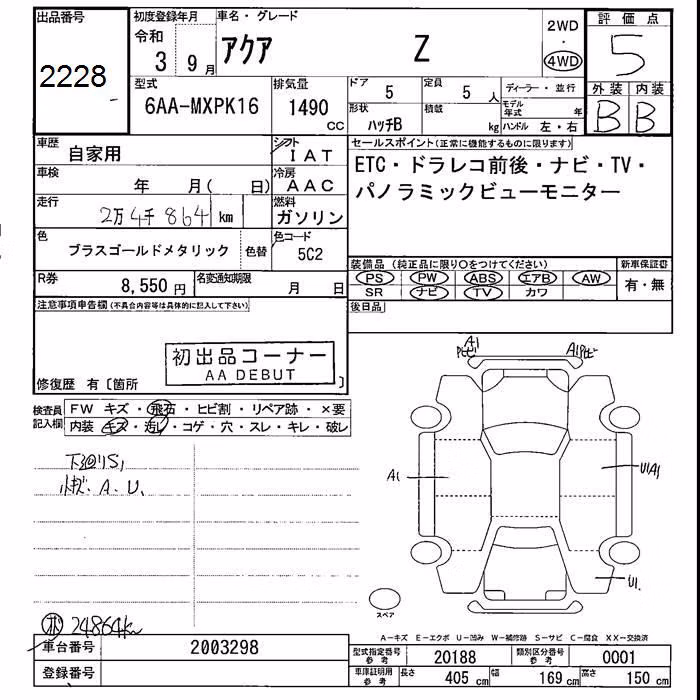 出品番号
2228
初度登録年月
令和
3 9月
車名・グレード
アクア Z
2WD
・
4WD
評価点
5
外装 内装
B B
型式
6AA-MXPK16
排気量
1490
CC
ドア
5
定員
5 人
形状
ハッチB
積載
kg
ディーラー・並行
モデル年式 年
ハンドル 左・右
車歴
自家用
シフト
IAT
車検
年 月( 日)
冷房
AAC
走行
2万4千864 km
燃料
ガソリン
色
ブラスゴールドメタリック
色替
色コード
5C2
R券
8,550円
名変通知期限
月 日
セールスポイント(正常に機能するものに限ります)
ETC・ドラレコ前後・ナビ・TV・
パノラミックビューモニター
装備品 (純正品に限り○をつけてください)
PS PW ABS エアB AW
SR ナビ TV カワ
新車保証書
有・無
後日品
注意事項申告欄(不具合内容等は具体的に記入して下さい)
初出品コーナー
AA DEBUT
修復歴 有〔箇所 〕
検査員記入欄
FW キズ・飛石・ヒビ割・リペア跡・×要
内装 キズ・汚レ・コゲ・穴・スレ・キレ・破レ
下廻りS1
小キズ.A.U.
A1
A1
A1
U1A1
U1.
スペア
24864km
A-キズ E-エクボ U-凹み W-補修跡 S-サビ C-腐食 XX-交換済
車台番号
2003298
登録番号
型式指定番号
参考
20188
類別区分番号
参考
0001
車庫証明用
参考
長さ
405 cm
幅
169 cm
高さ
150 cm